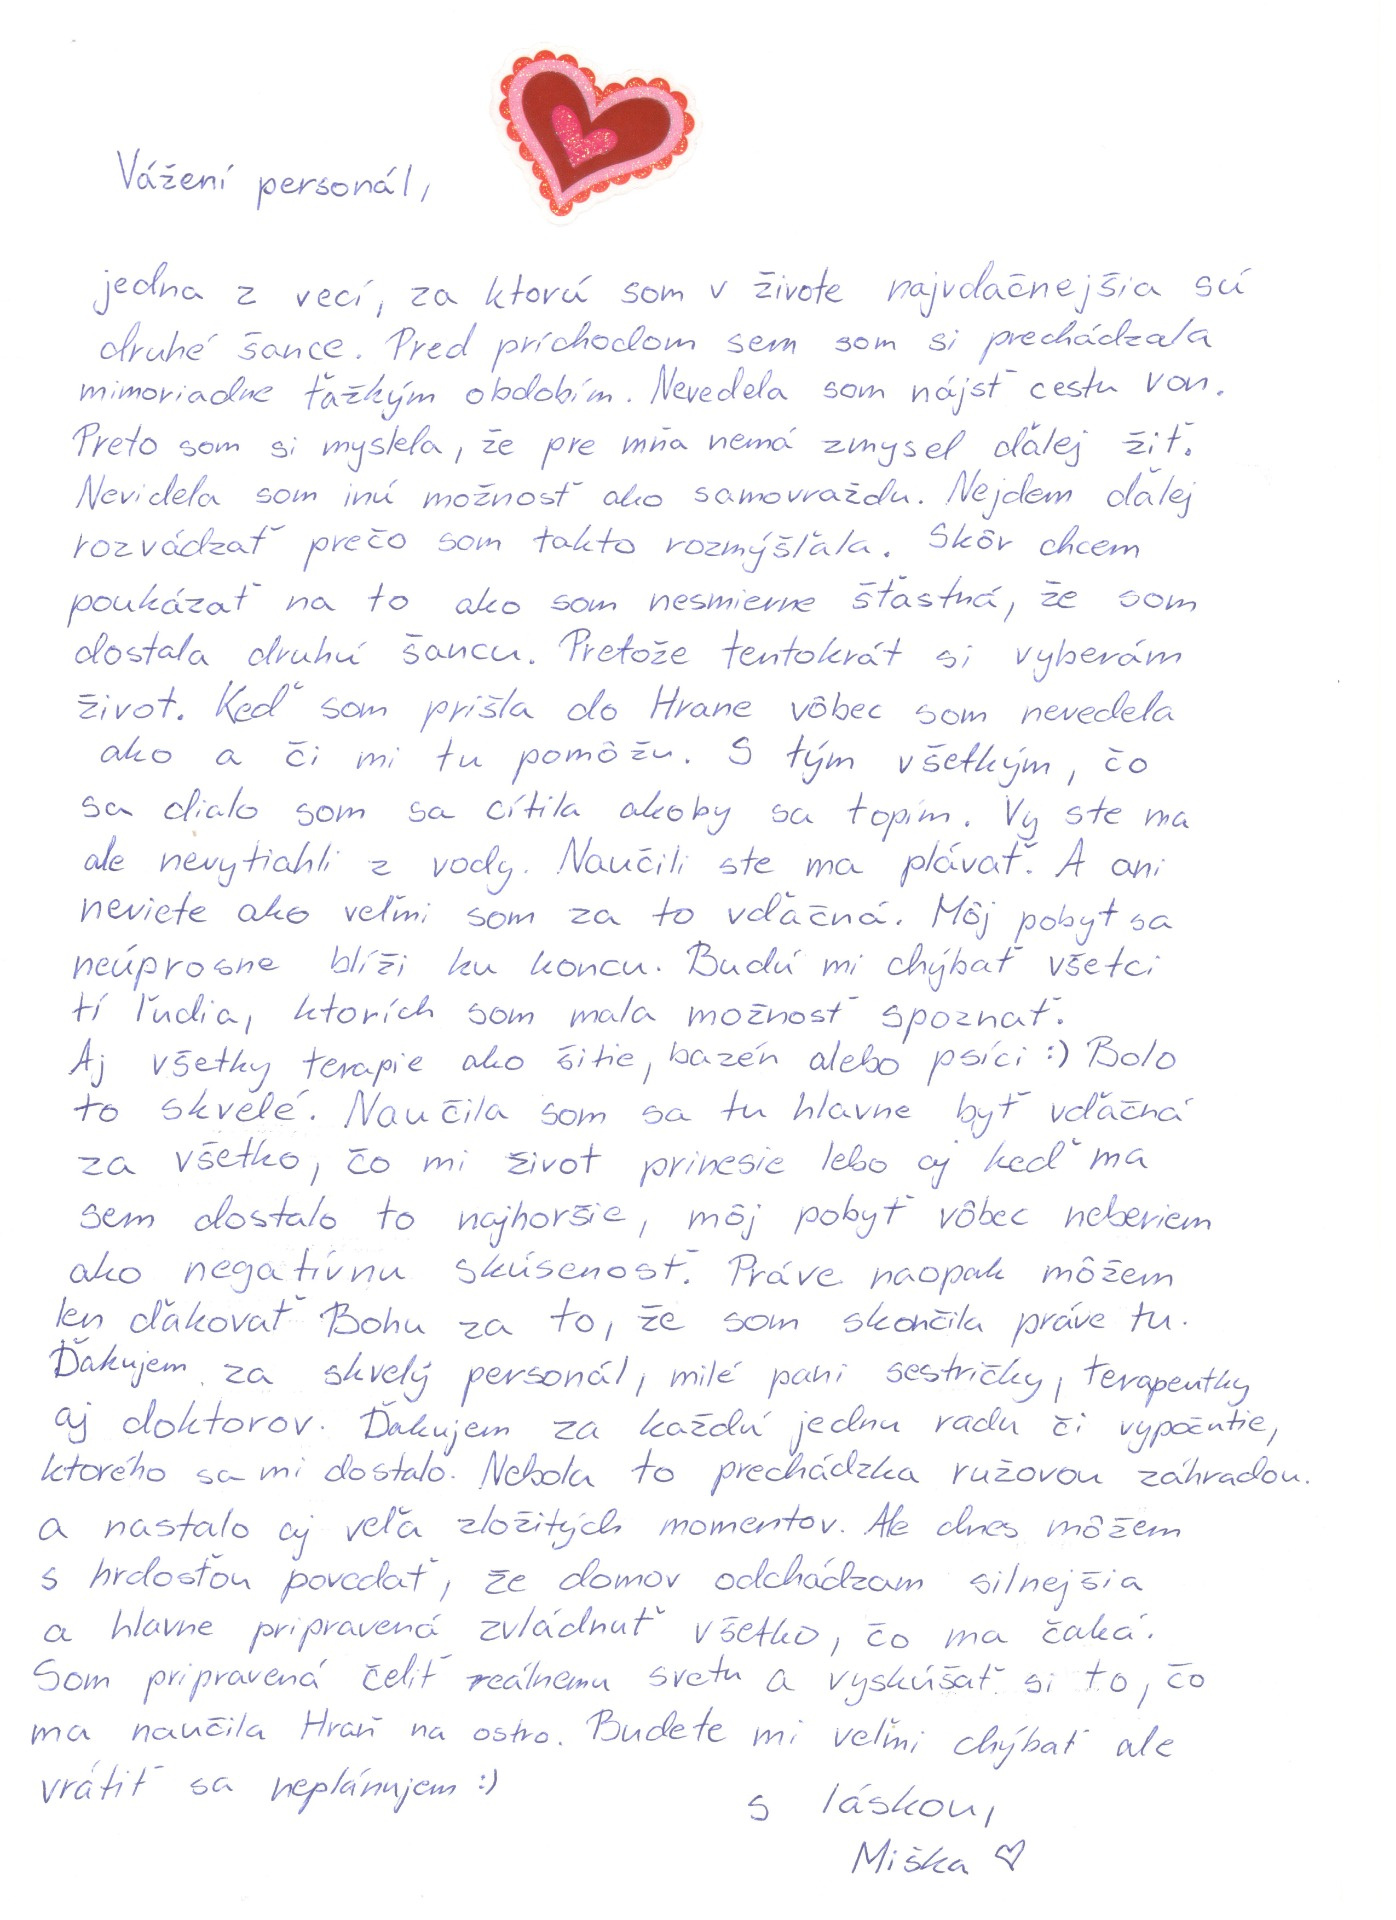 Vážení personál,
jedna z vecí, za ktorú som v živote najvďačnejšia sú
druhé šance. Pred príchodom sem som si prechádzala
mimoriadne ťažkým obdobím. Nevedela som nájsť cestu von.
Preto som si myslela, že pre mňa nemá zmysel ďalej žiť.
Nevidela som inú možnosť ako samovraždu. Nejdem ďalej
rozvádzať prečo som takto rozmýšľala. Skôr chcem
poukázať na to ako som nesmierne šťastná, že som
dostala druhú šancu. Pretože tentokrát si vyberám
život. Keď som prišla do Hrane vôbec som nevedela
ako a či mi tu pomôžu. S tým všetkým, čo
sa dialo som sa cítila akoby sa topím. Vy ste ma
ale nevytiahli z vody. Naučili ste ma plávať. A ani
neviete ako veľmi som za to vďačná. Môj pobyt sa
neúprosne blíži ku koncu. Budú mi chýbať všetci
tí ľudia, ktorích som mala možnosť spoznať.
Aj všetky terapie ako šitie, bazén alebo psíci :) Bolo
to skvelé. Naučila som sa tu hlavne byť vďačná
za všetko, čo mi život prinesie lebo aj keď ma
sem dostalo to najhoršie, môj pobyť vôbec neberiem
ako negatívnu skúsenosť. Práve naopak môžem
len ďakovať Bohu za to, že som skončila práve tu.
Ďakujem za skvelý personál, milé pani sestričky, terapeutky
aj doktorov. Ďakujem za každú jednu radu či vypočutie,
ktorého sa mi dostalo. Nebola to prechádzka ružovou záhradou.
a nastalo aj veľa zložitých momentov. Ale dnes môžem
s hrdosťou povedať, že domov odchádzam silnejšia
a hlavne pripravená zvládnuť všetko, čo ma čaká.
Som pripravená čeliť reálnemu svetu a vyskúšať si to, čo
ma naučila Hraň na ostro. Budete mi veľmi chýbať ale
vrátiť sa neplánujem :)
s láskou,
Miška ♡